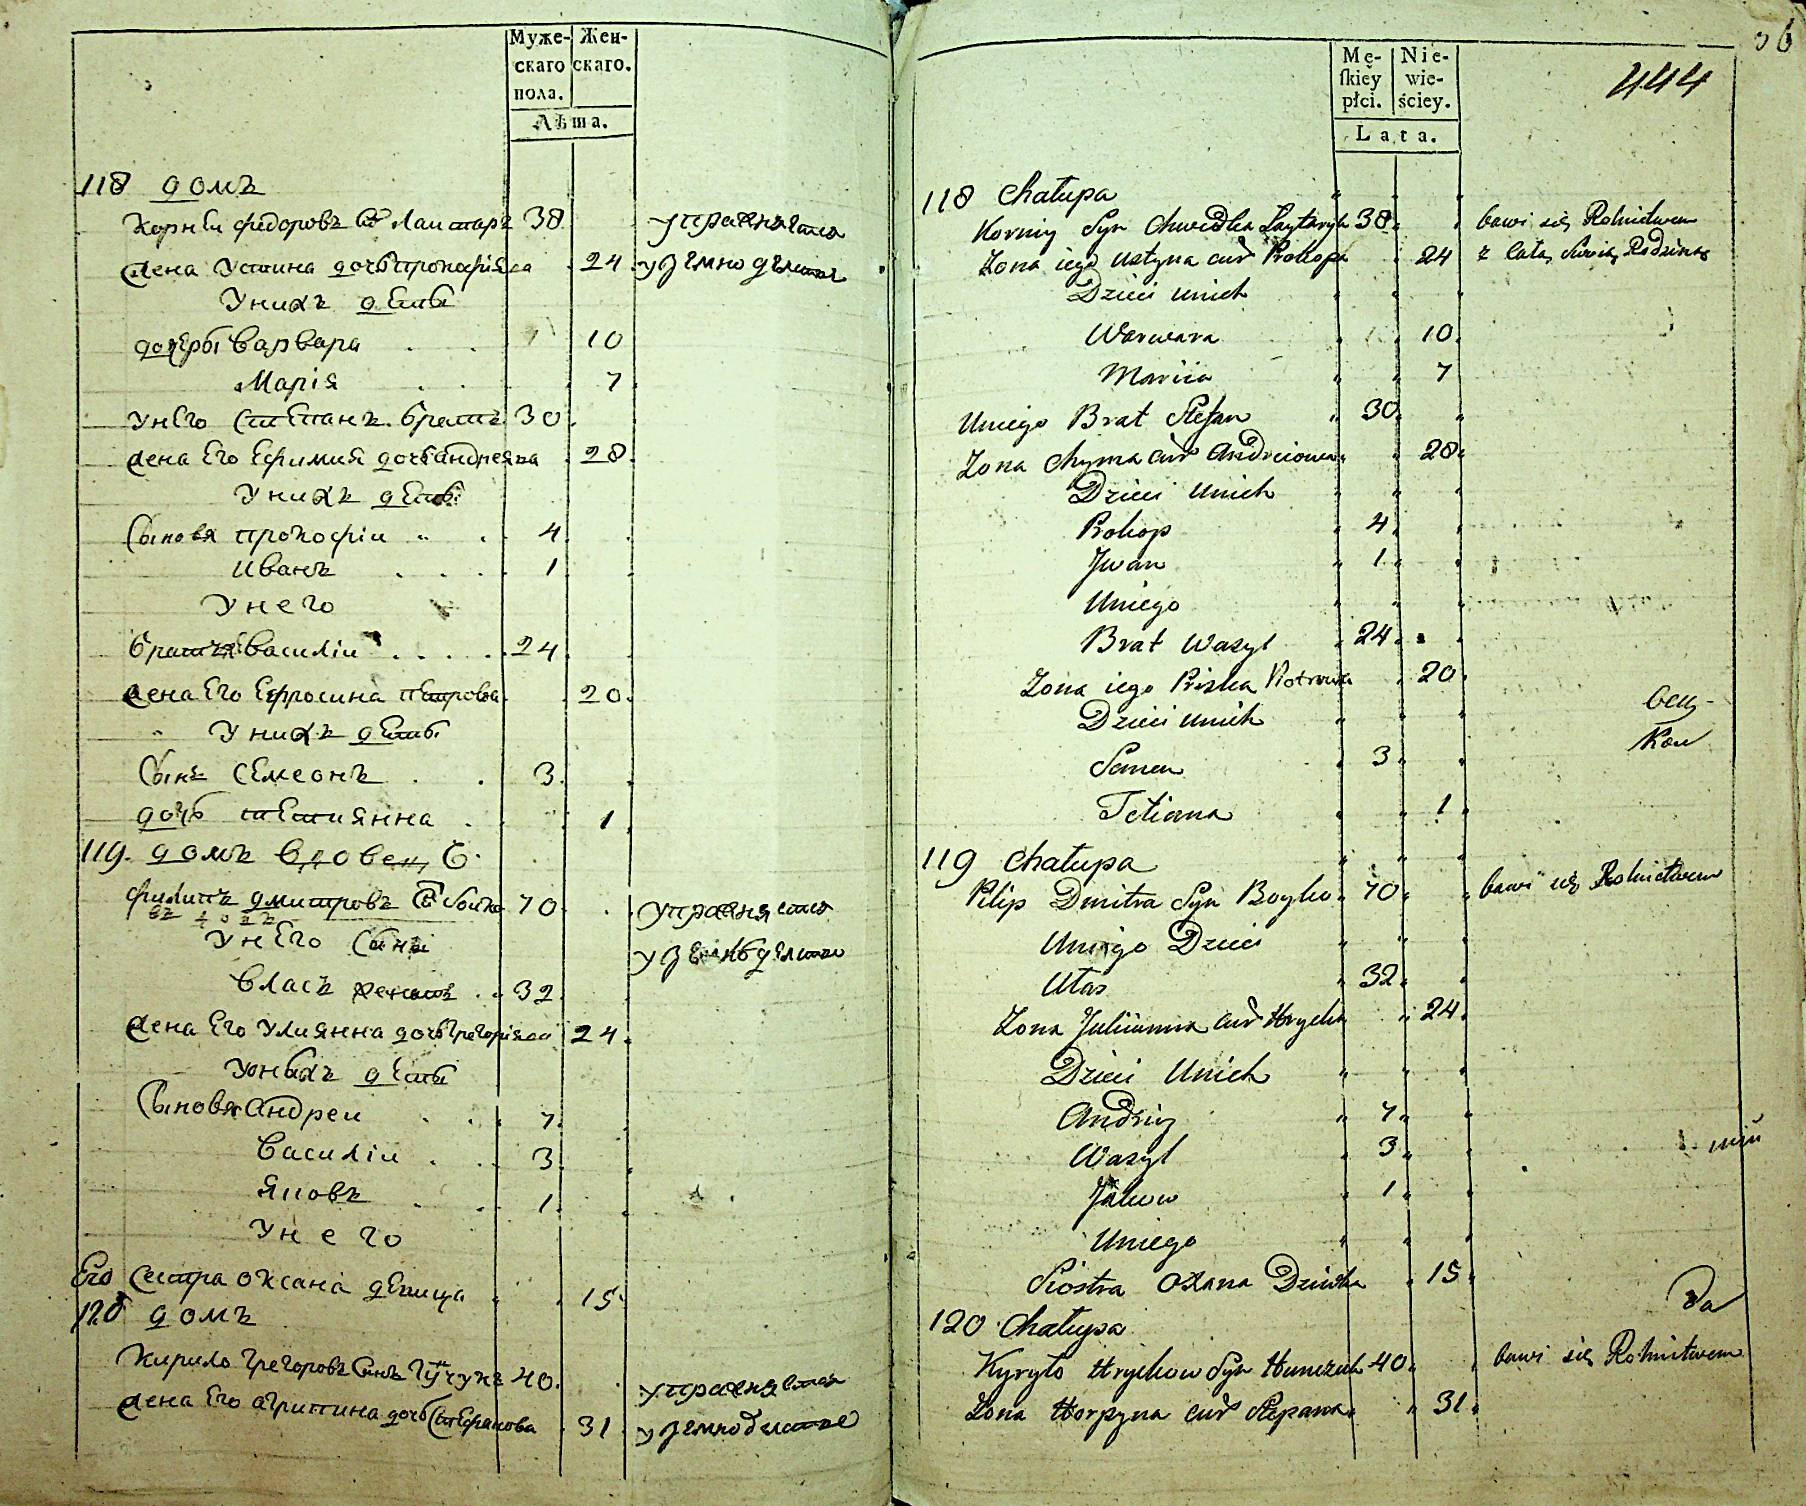 Муже- Жен-
скаго скаго.
пола.
Лѣта.
118 домъ
Корнѣи федоровъ Лаитаръ 38 управняется
жена Устина дочь прокофіява 24 уземледелстве
Унихъ дети
дочеры Варвара 10
Марія 7
Унего Степанъ братъ 30
жена Его Ефимия дочь андреява 28
Унихъ дети
Сыновя прокофіи 4
иванъ 1
Унего
братъ Василіи 24
жена Его Ефросина петрова 20
Унихъ дети
Сынъ Семеонъ 3
дочь тетиянна 1
119. домъ вдовец
филипъ дмитровъ Боико 70 управняется
Унего Сыны уземледелстве
Власъ женатъ 32
жена Его Улиянна дочь грегоріява 24
Унихъ дети
Сыновя Андреи 7
Василіи 3
яковъ 1
Унего
Его Сестра оксана девица 15
120 домъ
Кирило грегоровъ Синъ Гучукъ 40 управняется
жена Его агрипина дочь Стефанова 31 уземледелстве
36
444
Mę- Nie-
ſkiey wie-
płci. ściey.
Lata.
118 Chałupa
Korniy Syn Chwedka Laytaryk 38 bawi się Rolnictwem
Zona iego Ustyna cur Prokopa 24 z całą Swoią Rodziną
Dzieci unich
Warwara 10
Mariia 7
Uniego Brat Stefan 30
Zona Chyma cur Andreiowa 28
Dzieci unich
Prokop 4
Jwan 1
Uniego
Brat Wasyl 24
Zona iego Priska Piotrowa 20
Dzieci unich
Semen 3
Tetiana 1
119 Chałupa
Pilip Dmitra Syn Boyko 70 bawi się Rolnictwem
Uniego Dzieci
Ułas 32
Zona Juliianna cur Hrycka 24
Dzieci Unich
Andriy 7
Wasyl 3
Jakow 1
Uniego
Siostra Oxana Dziewka 15
120 Chałupa
Kyryło Hryckow Syn Hunczuk 40 bawi się Rolnictwem
Zona Horpyna cur Stepana 31